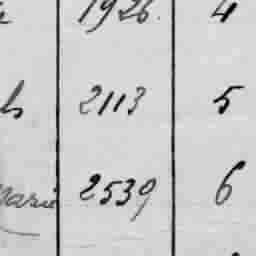 1926. 4
2113 5
Marie 2539 6